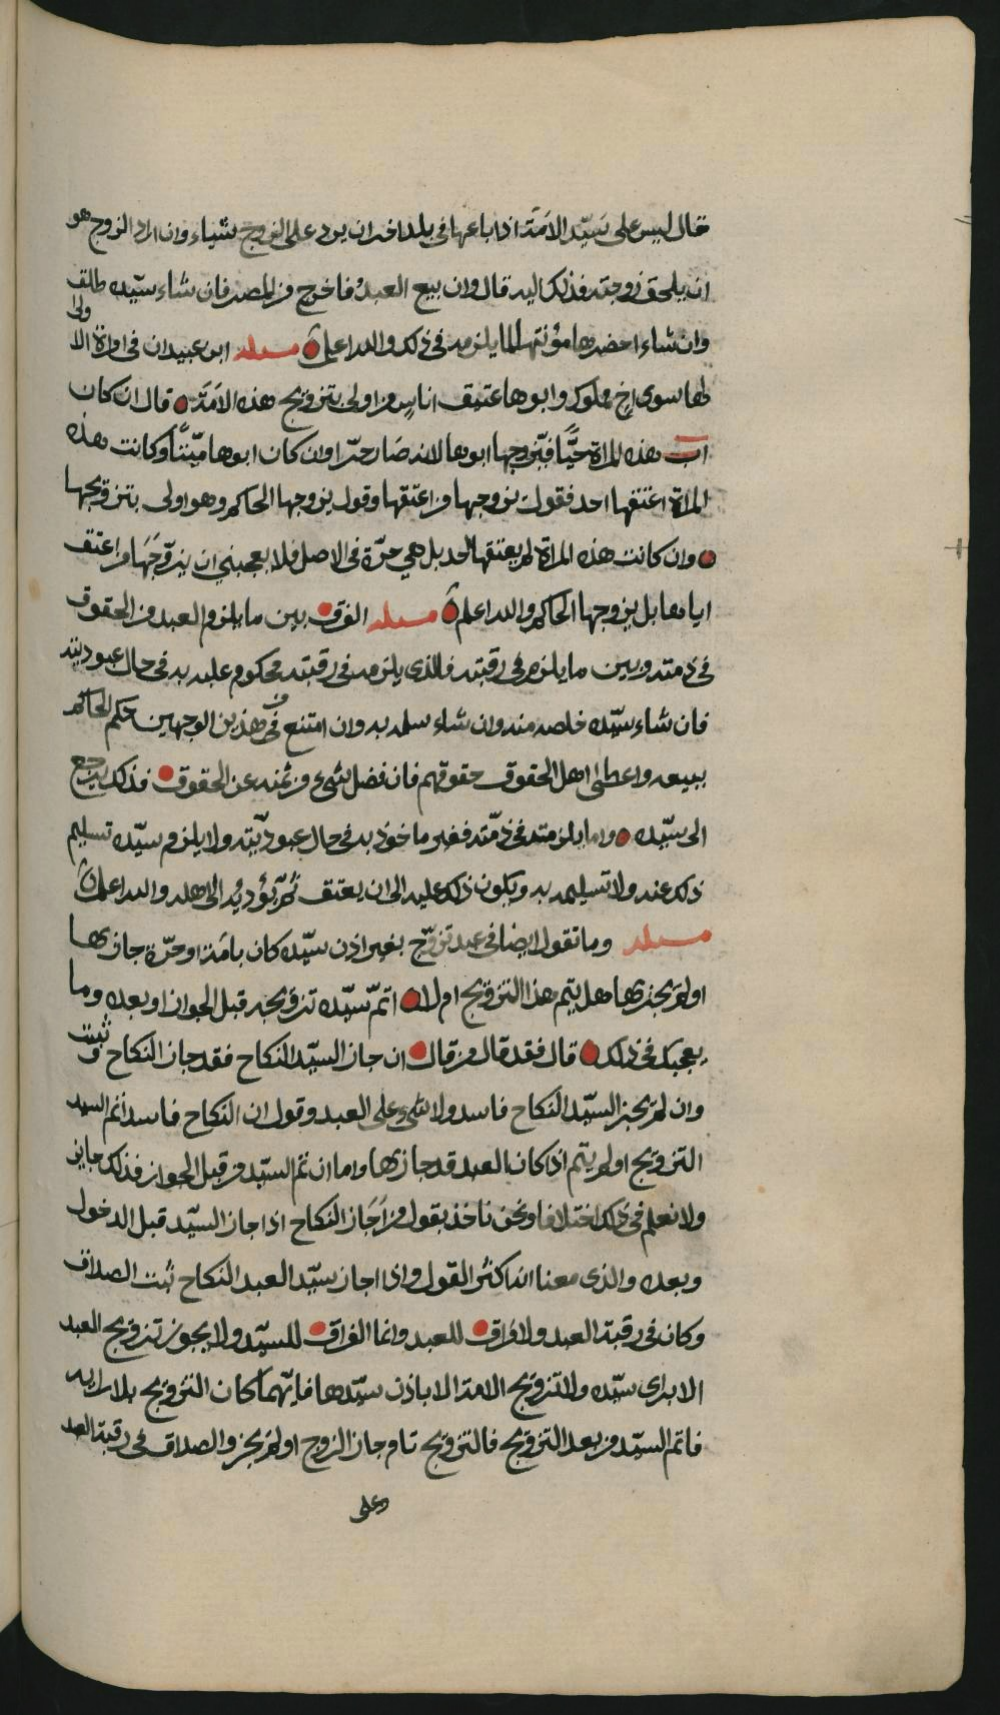 قال ليس على سَيّد الامَة اذا باعها فى بلد اخر ان يرد على الزوج شياء وان اراد الزوج هو
ان يلحق زوجته فذلك اليه قال وان بيع العبدُ فاخرج من المصر فان شاء سيّده طلق
وان شاء احضرها مؤنتها لما يلزمه فى ذلك والله اعلم مسئلة ابن عبيدان فى امراة لا ولى
لها سوى اخ مملوك وابوها عتيق اناس من اولى بتزويج هذه الامَة قال ان كان
اب هذه المراة حيًّا فيزوجها ابوها لانه صَار حرّا وان كان ابوها ميّتًا وكانت هذه
المراة اعتقها احد فقول يزوجها من اعتقها وقول يزوجها الحاكم وهو اولى بتزويجها
وان كانت هذه المراة لم يعتقها احد بل هي حرّة فى الاصل فلا يعجبني ان يزوّجَهَا من اعتق
اباها بل يزوجها الحاكم والله اعلم مسئلة الفرق بين ما يلزم العبد من الحقوق
فى ذمته وبين ما يلزمه فى رقبته فالذى يلزمه فى رقبته محكوم عليه به فى حال عبوديته
فان شاء سيّده خلصه منه وان شاء سلمه به وان امتنع من هذين الوجهين حكم الحاكم
ببيعه واعطى اهل الحقوق حقوقهم فان فضل شىء من ثمنه عن الحقوق فذلك يرجع
الى سيّده واما يلزمته فى ذمّته فغير ماخوذ به فى حال عبوديّته ولا يلزم سيّده تسليم
ذلك عنه ولا تسليمه به ويكون ذلك عليه الى ان يعتق ثم يؤديُه الى اهله والله اعلم
مسئلة وما تقول ايضا فى عبد تزوّج بغير اذن سيّده كان بامَة او حرّة جاز بها
او لم يجز بها هل يتم هذا التزويج ام لا اتمّ سيّده تزويجه قبل الجواز او بعده وما
يعجبك فى ذلك قال فقد قال من قال ان جاز السيّد النكاح فقد جاز النكاح وثبت
وان لم يجز السيّد النكاح فاسد ولا شىء على العبد وقول ان النكاح فاسد اتم السيد
التزويج او لم يتم اذا كان العبد قد جاز بها واما ان تم السيّد من قبل الجواز فذلك جايز
ولا نعلم فى ذلك اختلافا ونحن ناخذ بقول من اَجَاز النكاح اذا جاز السيّد قبل الدخول
وبعده والذى معنا انه اكثر القول واذا اجاز سيّد العبد النكاح ثبت الصداق
وكان فى رقبة العبد ولا فراق للعبد وانما الفراق للسيّد ولا يجوز تزويج العبد
الا براى سيّده ولا تزويج الامة الا باذن سيّدها فايّهما كان التزويج بلا رايه
فاتم السيّد من بعد التزويج فالتزويج تام جاز الزوج او لم يجز والصداق فى رقبة العبد
وعلى